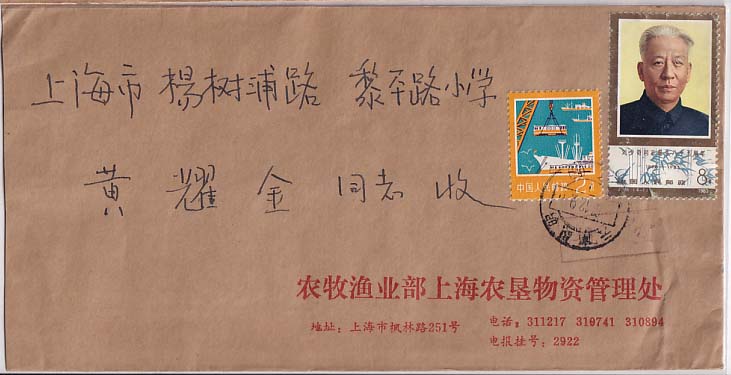 上海市 楊树浦路 黎平路小学
黄耀金同志收
中国人民邮政
2
8
1983
农牧渔业部上海农垦物资管理处
地址：上海市枫林路251号
电话：311217 310741 310894
电报挂号：2922